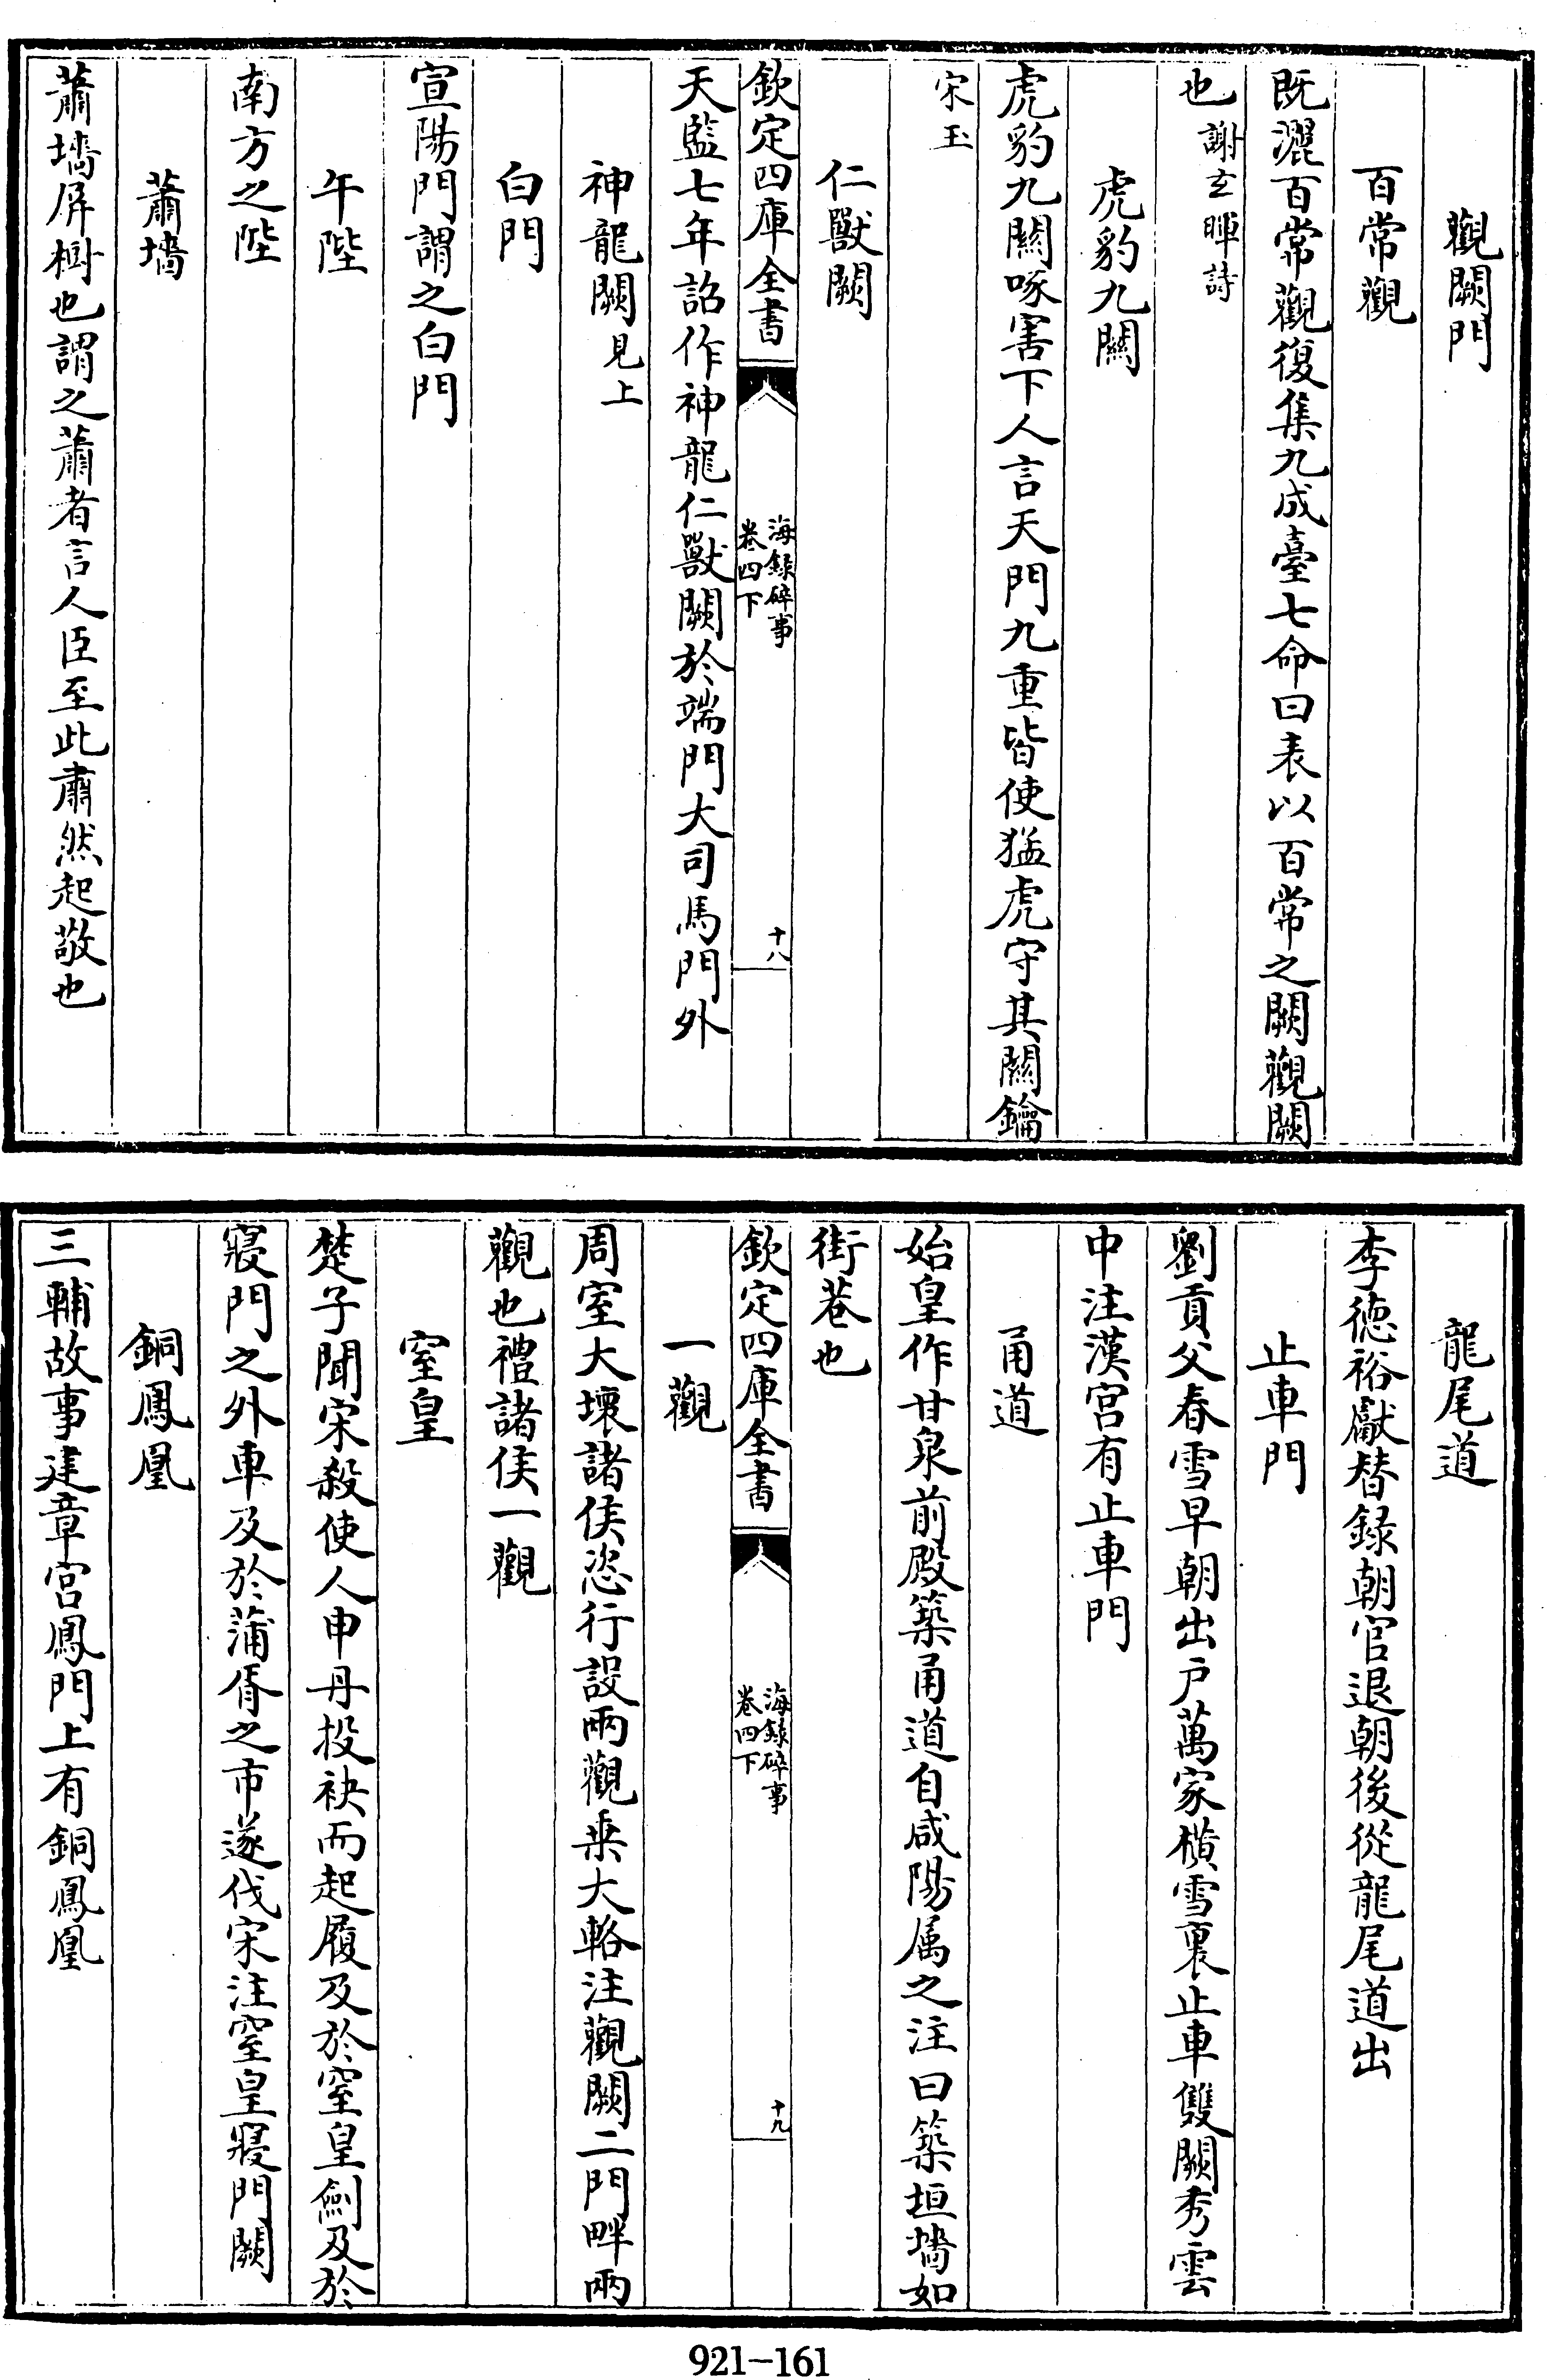 觀闕門
百常觀
既灑百常觀復集九成臺七命曰表以百常之闕觀闕
也謝玄暉詩
虎豹九關
虎豹九關啄害下人言天門九重皆使猛虎守其關鑰
宋玉
仁獸闕
欽定四庫全書
海錄碎事
卷四下
十八
天監七年詔作神龍仁獸闕於端門大司馬門外
神龍闕見上
白門
宣陽門謂之白門
午陛
南方之陛
蕭墻
蕭墻屏樹也謂之蕭者言人臣至此肅然起敬也
龍尾道
李德裕獻替録朝官退朝後從龍尾道出
止車門
劉貢父春雪早朝出户萬家横雪裏止車雙闕秀雲
中注漢宫有止車門
甬道
始皇作甘泉前殿築甬道自咸陽属之注曰築垣墻如
街巷也
欽定四庫全書
海録碎事
卷四下
十九
一觀
周室大壞諸侯恣行設兩觀乗大輅注觀闕二門畔兩
觀也禮諸侯一觀
窒皇
楚子聞宋殺使人申丹投袂而起履及於窒皇劍及於
寢門之外車及於蒲胥之市遂伐宋注窒皇寢門闕
銅鳳凰
三輔故事建章宫鳳門上有銅鳳凰
921-161